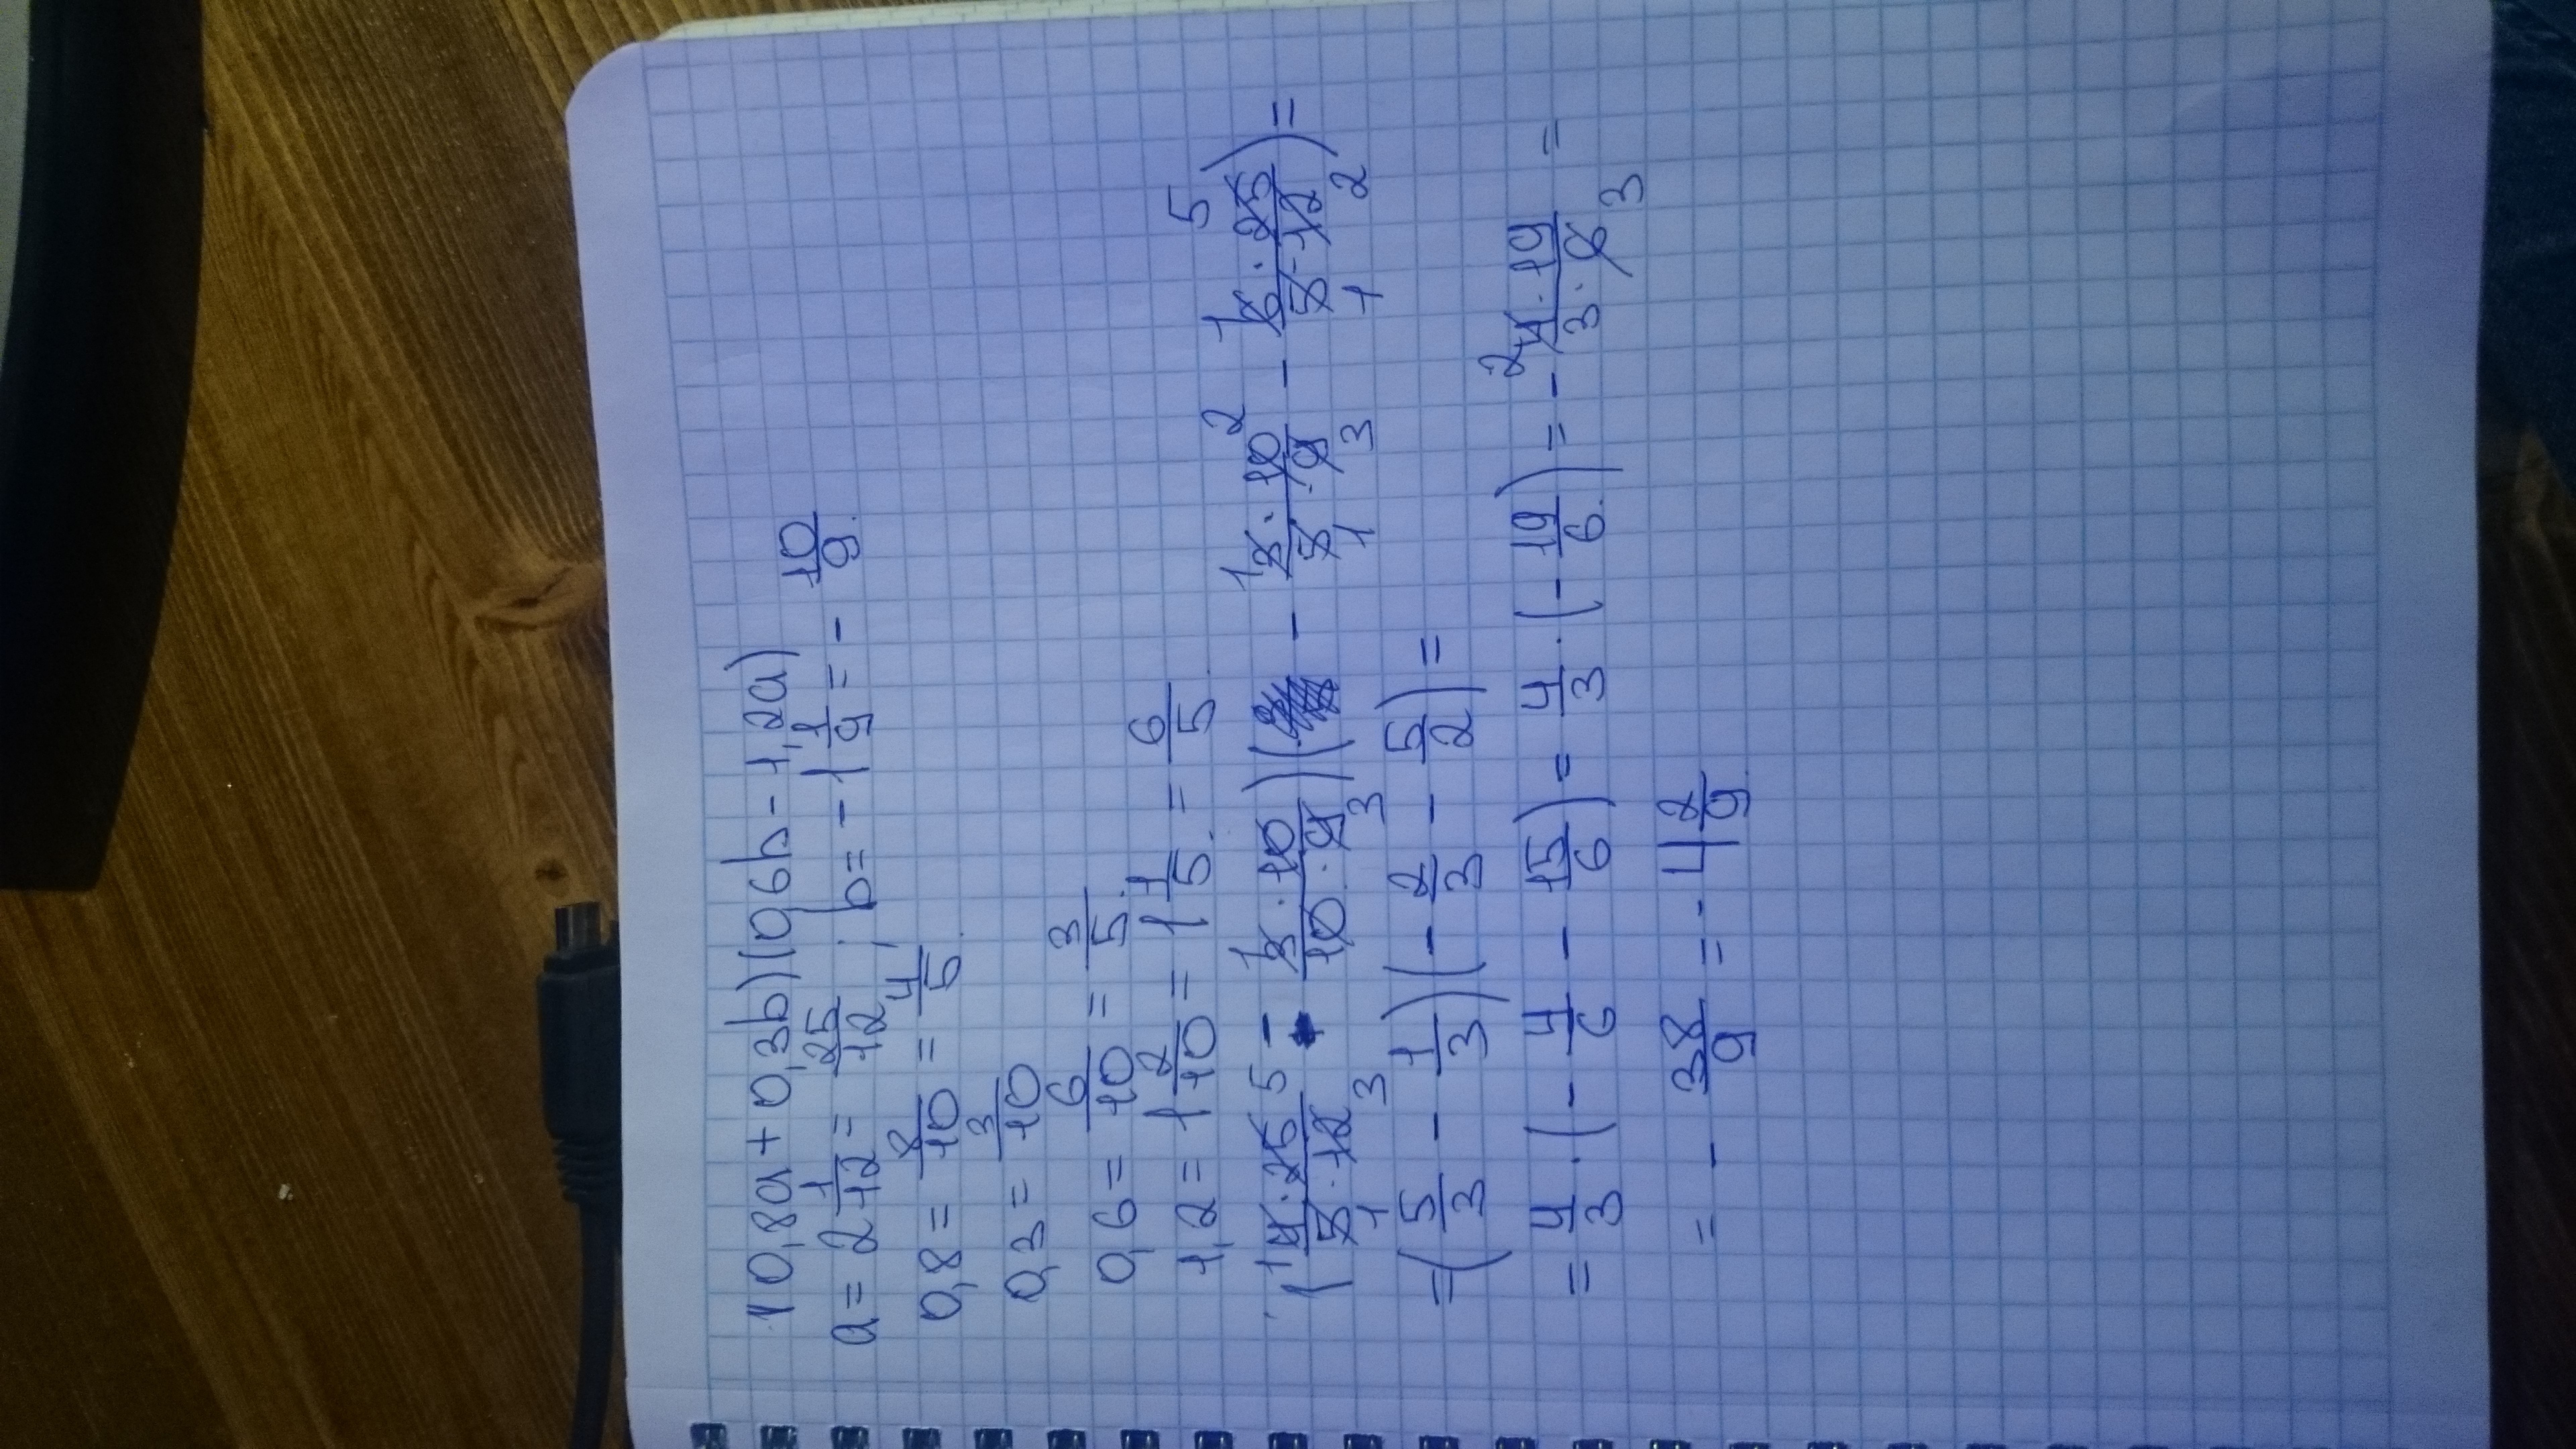 (0,8a + 0,3b)(0,6b - 1,2a)
a = 2 1/12 = 25/12 ; b = - 1 1/9 = - 10/9.
0,8 = 8/10 = 4/5.
0,3 = 3/10
0,6 = 6/10 = 3/5.
1,2 = 1 2/10 = 1 1/5. = 6/5.
(4·25/5·12 - 3·10/10·9)( - 3·10/5·9 - 6·25/5·12) =
= (5/3 - 1/3)(- 2/3 - 5/2) =
= 4/3 · (- 4/6 - 15/6) = 4/3 · (- 19/6.) = - 4·19/3·6 =
= - 38/9 = - 4 2/9